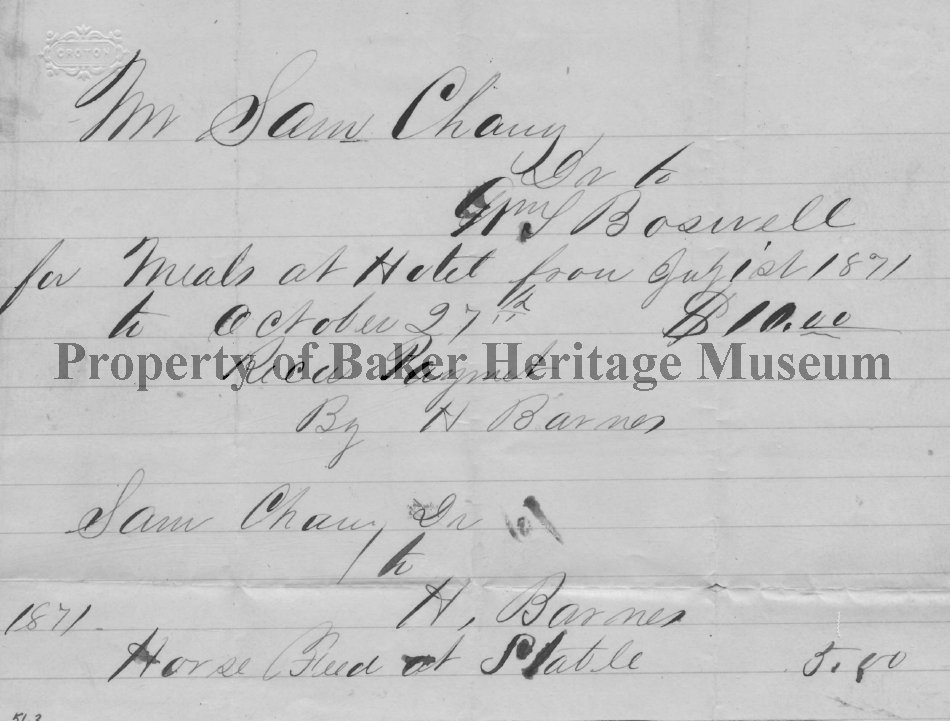 CROTON
Mr Sam Chang
Dr to
Wm S Boswell
for Meals at Hotel from July 1st 1871
to October 27th $10.00
Property of Baker Heritage Museum
Recd Paymet
By H Barnes
Sam Chang Dr
to
H. Barnes
1871
Horse Feed at Stable 5.00